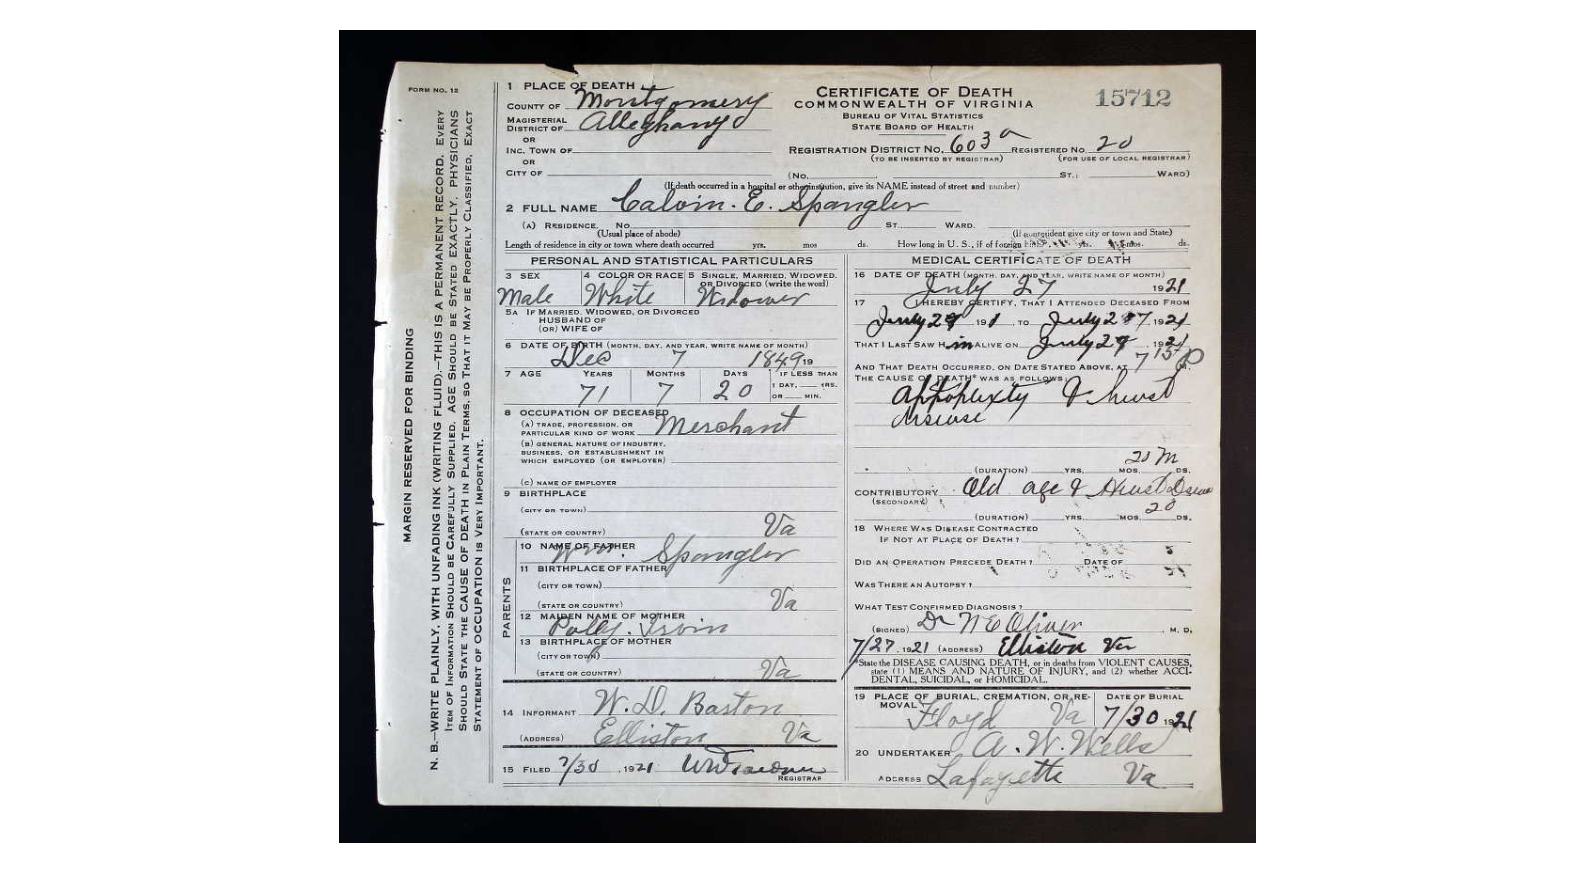 FORM NO. 12
MARGIN RESERVED FOR BINDING
N. B.—WRITE PLAINLY, WITH UNFADING INK (WRITING FLUID).—THIS IS A PERMANENT RECORD. EVERY
ITEM OF INFORMATION SHOULD BE CAREFULLY SUPPLIED. AGE SHOULD BE STATED EXACTLY. PHYSICIANS
SHOULD STATE THE CAUSE OF DEATH IN PLAIN TERMS, SO THAT IT MAY BE PROPERLY CLASSIFIED. EXACT
STATEMENT OF OCCUPATION IS VERY IMPORTANT.
1 PLACE OF DEATH
COUNTY OF Montgomery
MAGISTERIAL DISTRICT OF Alleghany
OR
INC. TOWN OF
OR
CITY OF
CERTIFICATE OF DEATH
COMMONWEALTH OF VIRGINIA
BUREAU OF VITAL STATISTICS
STATE BOARD OF HEALTH
15712
REGISTRATION DISTRICT NO. 603 a REGISTERED NO. 20
(TO BE INSERTED BY REGISTRAR) (FOR USE OF LOCAL REGISTRAR)
(No. ST.; WARD)
(If death occurred in a hospital or other institution, give its NAME instead of street and number)
2 FULL NAME Calvin. E. Spangler
(A) RESIDENCE. No. ST. WARD.
(Usual place of abode) (If nonresident give city or town and State)
Length of residence in city or town where death occurred yrs. mos ds. How long in U. S., if of foreign birth yrs. mos. ds.
PERSONAL AND STATISTICAL PARTICULARS
3 SEX 4 COLOR OR RACE 5 SINGLE, MARRIED, WIDOWED, OR DIVORCED (write the word)
Male White Widower
5A IF MARRIED, WIDOWED, OR DIVORCED
HUSBAND OF
(OR) WIFE OF
6 DATE OF BIRTH (MONTH, DAY, AND YEAR, WRITE NAME OF MONTH)
Dec 7 1849 19
7 AGE YEARS MONTHS DAYS IF LESS THAN
1 DAY, HRS.
OR MIN.
71 7 20
8 OCCUPATION OF DECEASED
(A) TRADE, PROFESSION, OR
PARTICULAR KIND OF WORK Merchant
(B) GENERAL NATURE OF INDUSTRY,
BUSINESS, OR ESTABLISHMENT IN
WHICH EMPLOYED (OR EMPLOYER)
(C) NAME OF EMPLOYER
9 BIRTHPLACE
(CITY OR TOWN)
(STATE OR COUNTRY) Va
PARENTS
10 NAME OF FATHER Wm. Spangler
11 BIRTHPLACE OF FATHER
(CITY OR TOWN)
(STATE OR COUNTRY) Va
12 MAIDEN NAME OF MOTHER
Polly. Irvin
13 BIRTHPLACE OF MOTHER
(CITY OR TOWN)
(STATE OR COUNTRY) Va
14 INFORMANT W. D. Barton
(ADDRESS) Elliston Va
15 FILED 7/30, 1921
REGISTRAR
MEDICAL CERTIFICATE OF DEATH
16 DATE OF DEATH (MONTH, DAY, AND YEAR, WRITE NAME OF MONTH)
July 27 1921
17 I HEREBY CERTIFY, THAT I ATTENDED DECEASED FROM
July 27 191, TO July 27, 1921
THAT I LAST SAW HIM ALIVE ON July 27, 1921
AND THAT DEATH OCCURRED, ON DATE STATED ABOVE, AT 7 15 P M.
THE CAUSE OF DEATH* WAS AS FOLLOWS:
disease
20 M
(DURATION) YRS. MOS. DS.
CONTRIBUTORY Old age &
(SECONDARY)
20
(DURATION) YRS. MOS. DS.
18 WHERE WAS DISEASE CONTRACTED
IF NOT AT PLACE OF DEATH?
DID AN OPERATION PRECEDE DEATH? DATE OF
WAS THERE AN AUTOPSY?
WHAT TEST CONFIRMED DIAGNOSIS?
(SIGNED) Dr N E Oliver, M. D.
7/27, 1921 (ADDRESS) Elliston Va
*State the DISEASE CAUSING DEATH, or in deaths from VIOLENT CAUSES,
state (1) MEANS AND NATURE OF INJURY, and (2) whether ACCI-
DENTAL, SUICIDAL, or HOMICIDAL.
19 PLACE OF BURIAL, CREMATION, OR RE-
MOVAL DATE OF BURIAL
Floyd Va 7/30 1921
20 UNDERTAKER A. W. Wells
ADDRESS Lafayette Va